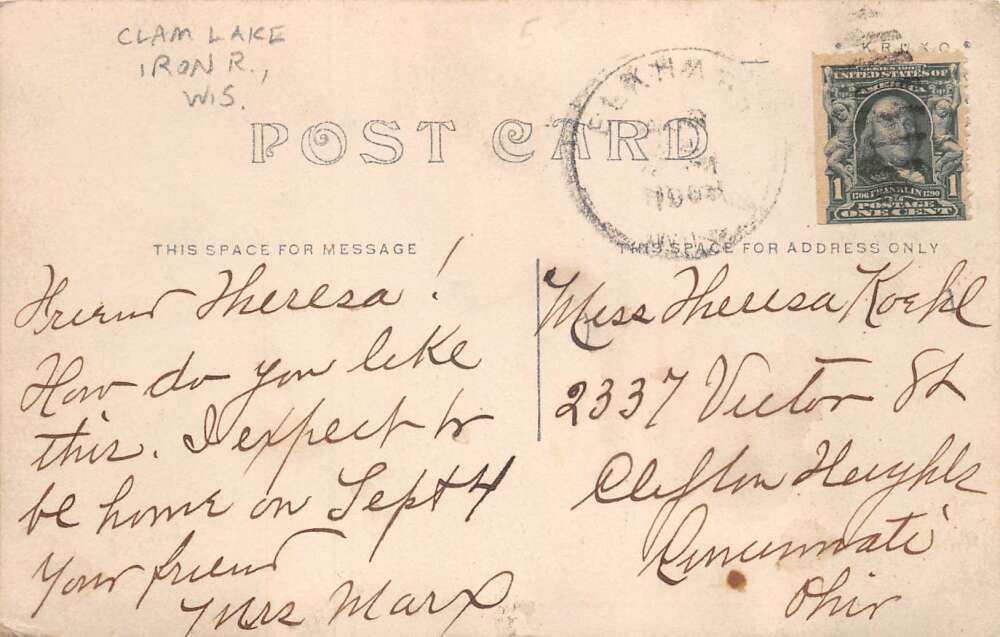 CLAM LAKE
IRON R.,
WIS.
POST CARD
KRUXO
SERIES 1902
UNITED STATES OF
AMERICA
1 1706 FRANKLIN 1790 1
POSTAGE
ONE CENT
THIS SPACE FOR MESSAGE
Friend Theresa!
How do you like
this. I expect to
be home on Sept 4
Your friend
Mrs Marx
THIS SPACE FOR ADDRESS ONLY
Miss Theresa Koehl
2337 Victor St
Clifton Heights
Cincinnati
Ohio